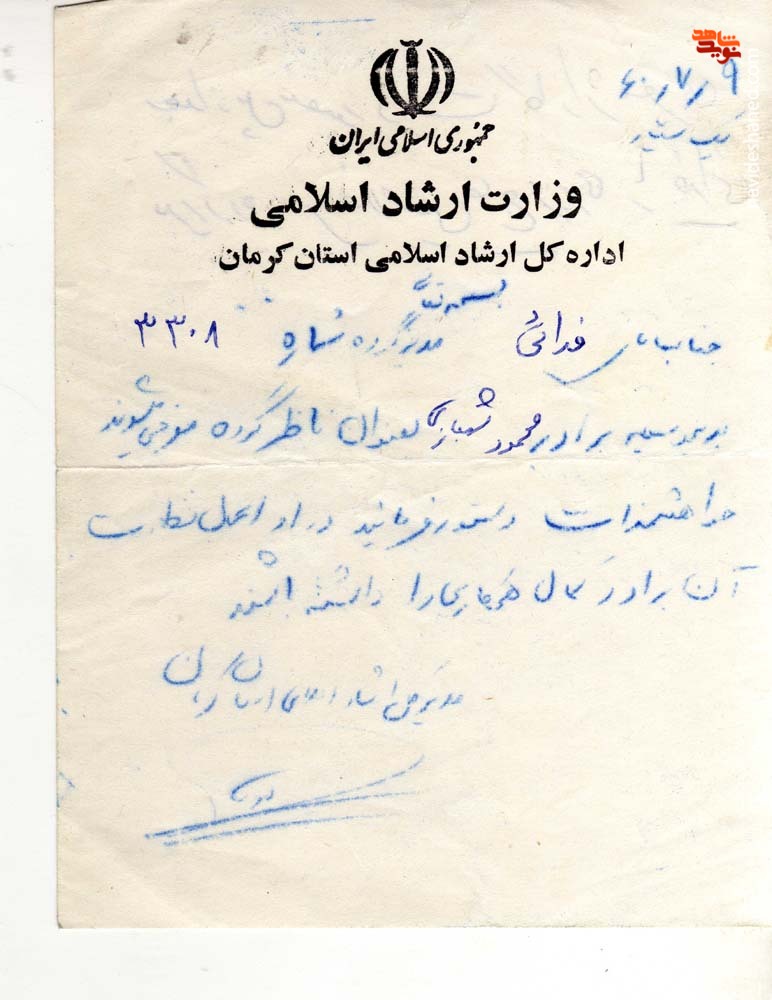 نوید شاهد
۶۰/۷/۹
جمهوری اسلامی ایران
وزارت ارشاد اسلامی
اداره کل ارشاد اسلامی استان کرمان
بسمه تعالی
جناب آقای فدائی مدیر گروه شماره ۳۳۰۸
بدینوسیله برادر محمود شهبازی بعنوان ناظر گروه معرفی میشوند
خواهشمند است دستور فرمائید در امر اعمال نظارت
آن برادر کمال همکاری را داشته باشند
مدیرکل ارشاد اسلامی استان کرمان
navideshahed.com